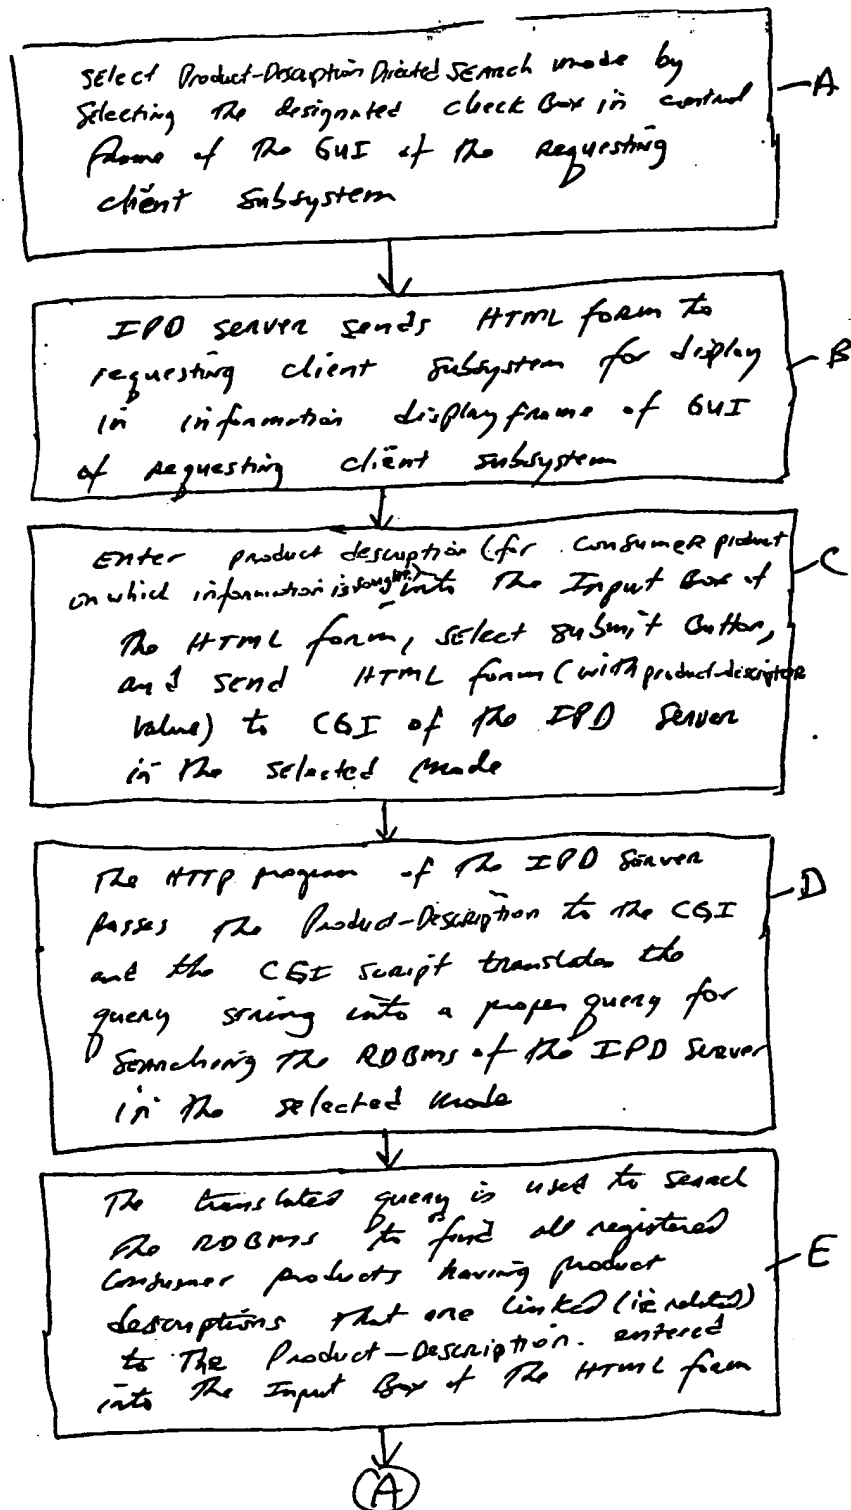 Select Product-Description Directed Search mode by
Selecting the designated check Box in control
frame of the GUI of the requesting
client subsystem
A
IPD server sends HTML form to
requesting client subsystem for display
in information display frame of GUI
of requesting client subsystem
B
Enter product description (for consumer product
on which information is sought) into the Input Box of
the HTML form, select submit Button,
and send HTML form (with product-descriptor
value) to CGI of the IPD Server
in the selected mode
C
The HTTP program of the IPD Server
passes the Product-Description to the CGI
and the CGI script translates the
query string into a proper query for
searching the RDBMS of the IPD Server
in the selected mode
D
The translated query is used to search
the RDBMS to find all registered
consumer products having product
descriptions that are linked (ie related)
to the Product-Description. entered
into the Input Box of the HTML form
E
A